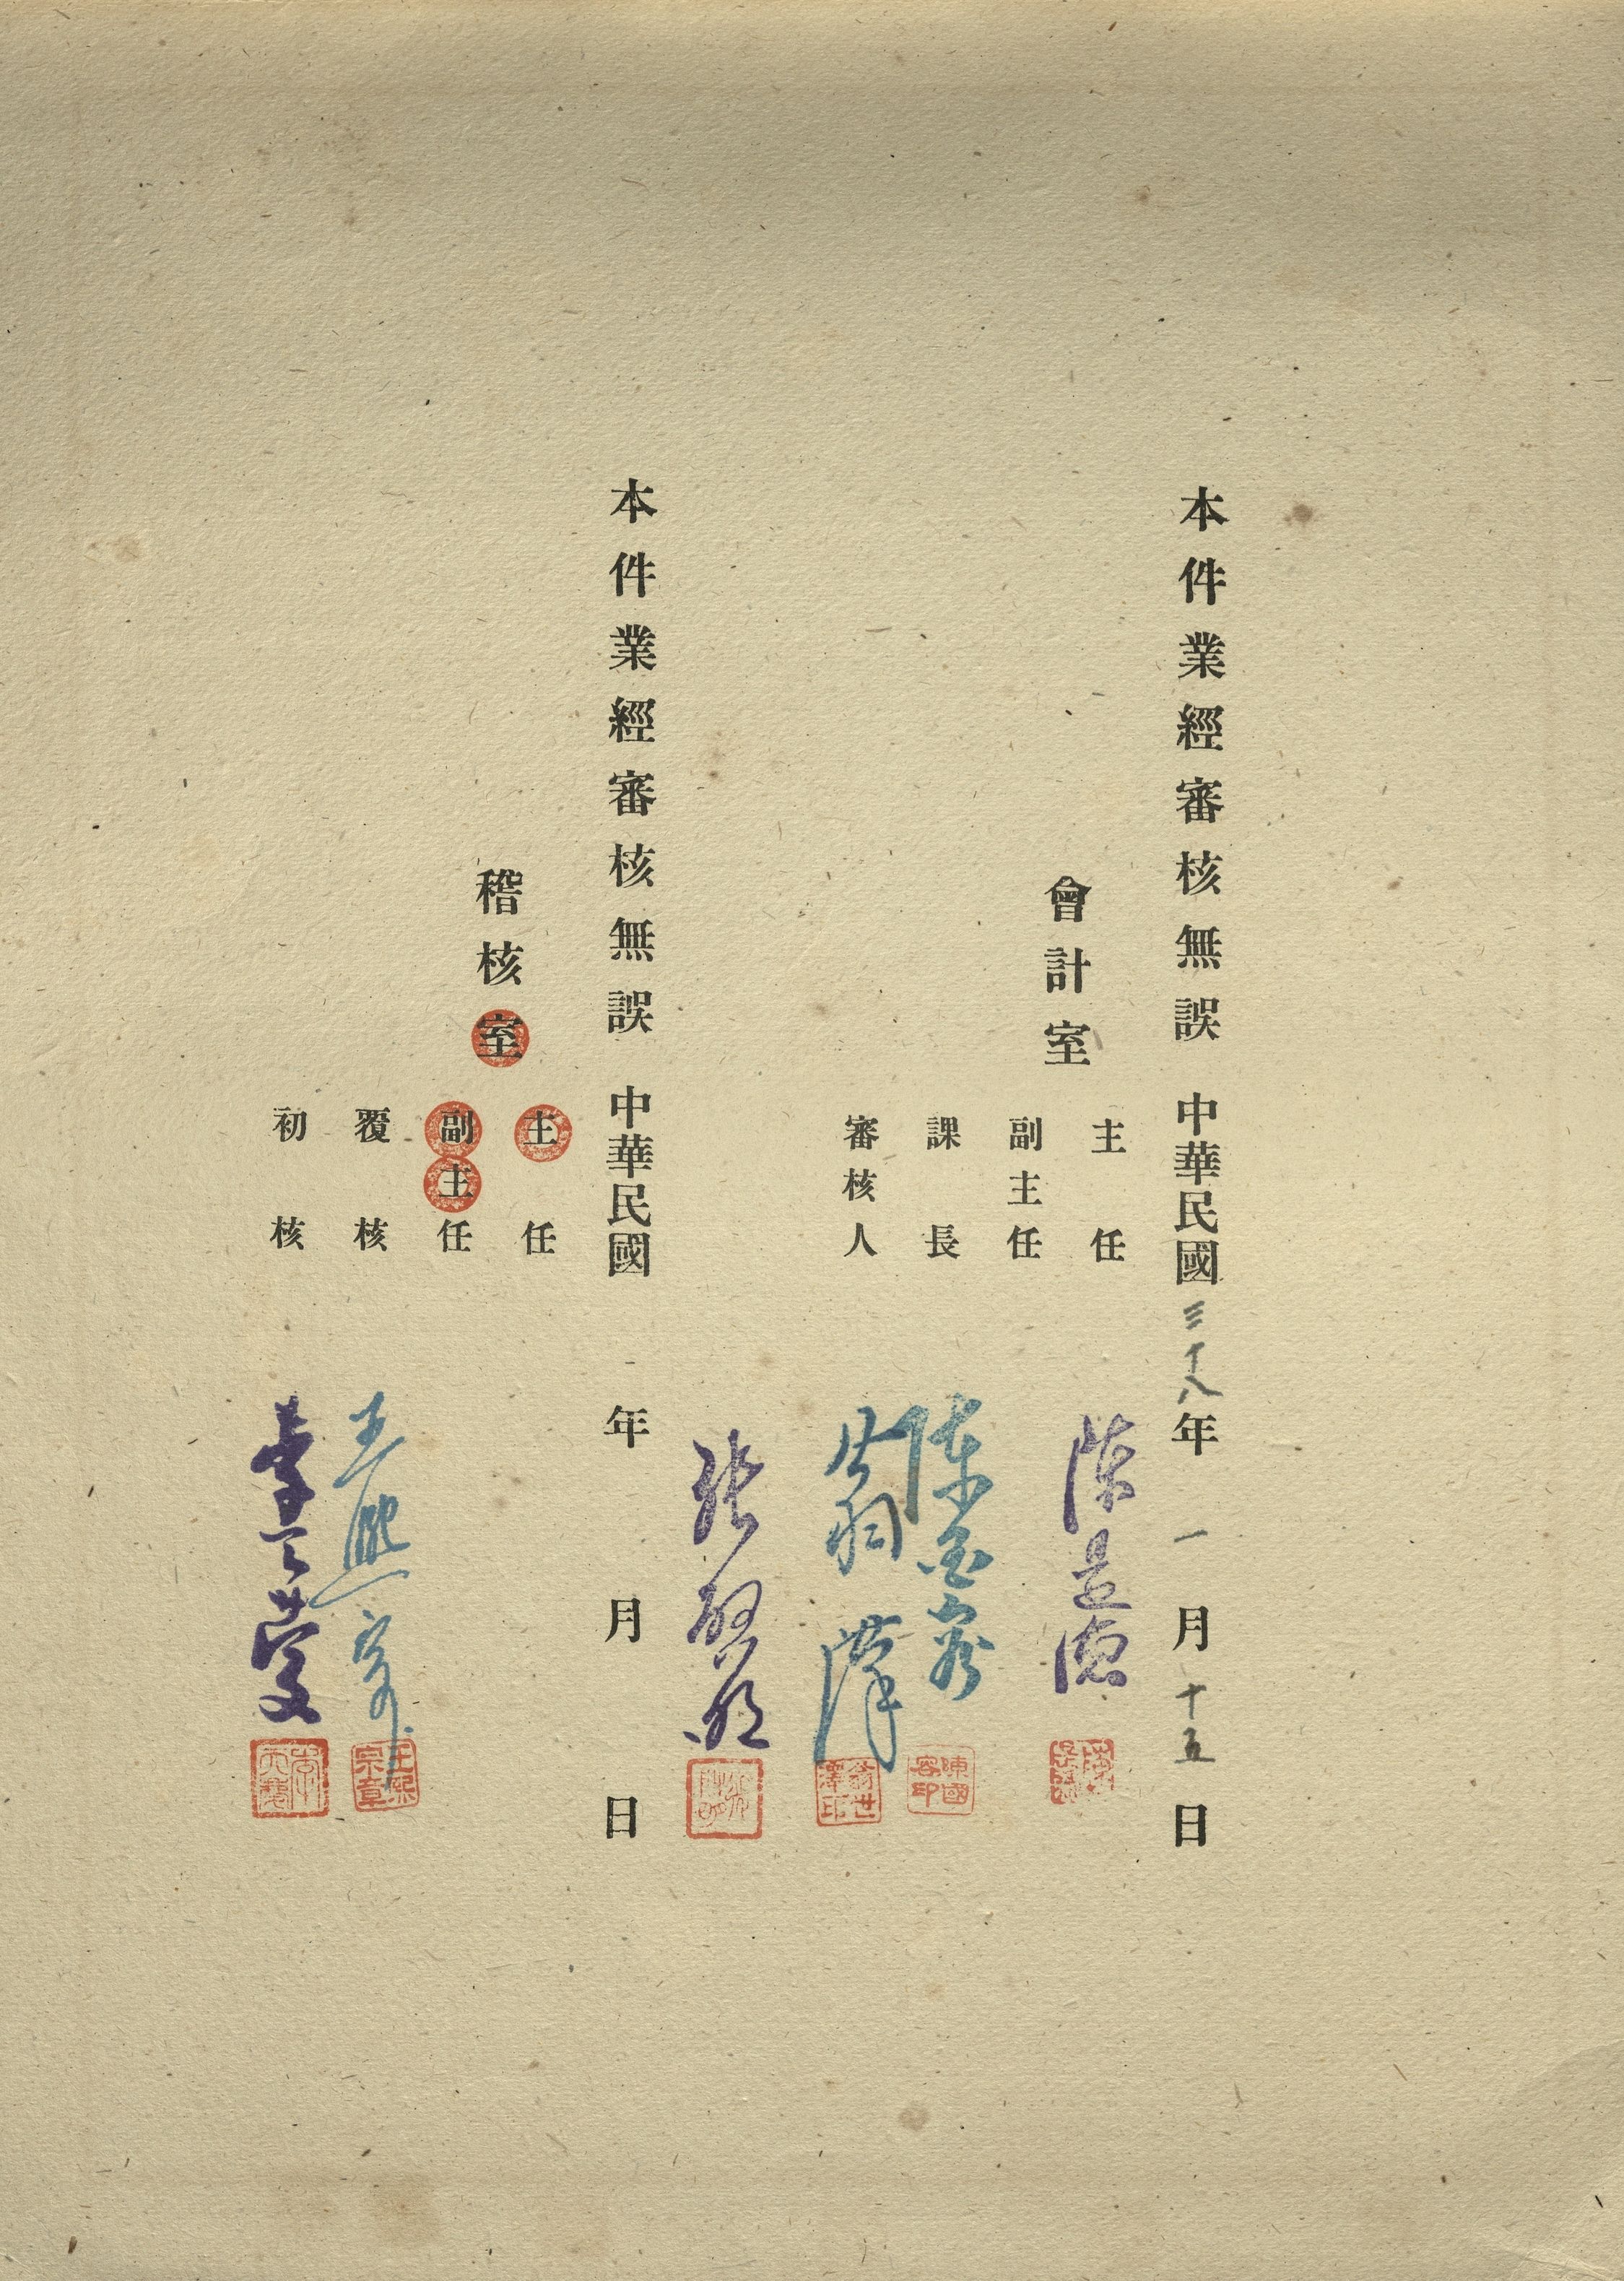 本件業經審核無誤 中華民國三十八年一月十五日
會計室
主任 陳是德
副主任
課長 陳國容
審核人 翁世澤
張啓明
陳國容印
翁世澤印
本件業經審核無誤 中華民國 年 月 日
稽核室
主任
副主任
覆核 王熙宗
初核 李天慶
王熙宗章